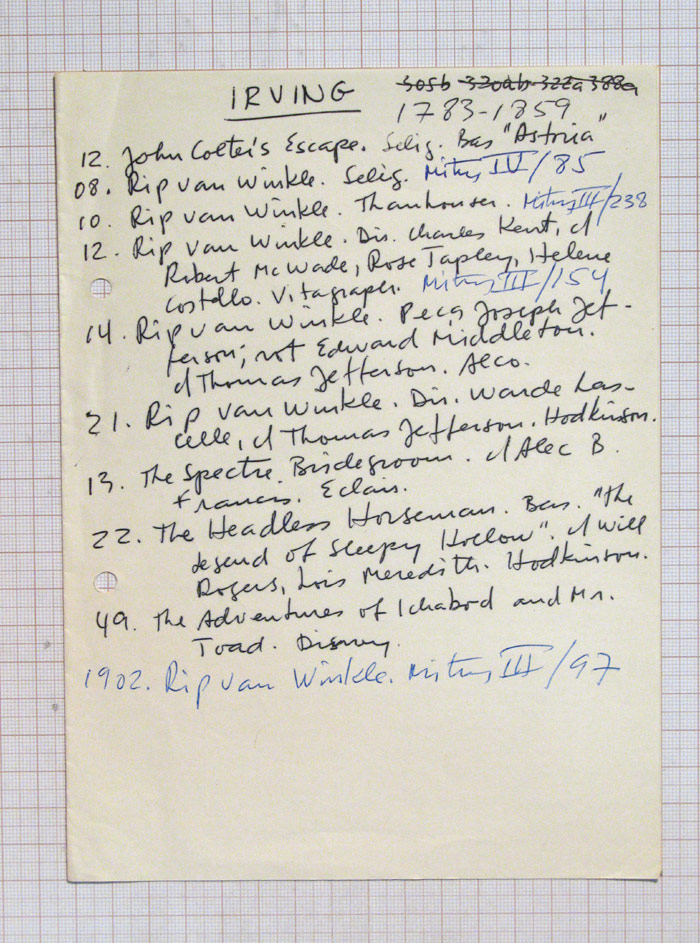 IRVING 305b 320ab 322a 388a
1783-1859
12. John Colter's Escape. Selig. Bas "Astoria"
08. Rip van Winkle. Selig. Mitry IV/85
10. Rip van Winkle. Thanhouser. Mitry III/238
12. Rip van Winkle. Dir. Charles Kent, d
Robert McWade, Rose Tapley, Helene
Costello. Vitagraph. Mitry III/154
14. Rip van Winkle. Peça Joseph Jef-
ferson; not Edward Middleton.
d Thomas Jefferson. Alco.
21. Rip van Winkle. Dir. Warde Las-
celle, d Thomas Jefferson. Hodkinson.
13. The Spectre Bridegroom. d Alec B.
Francis. Eclair.
22. The Headless Horseman. Bas. "The
Legend of Sleepy Hollow". d Will
Rogers, Lois Meredith. Hodkinson.
49. The Adventures of Ichabod and Mr.
Toad. Disney.
1902. Rip van Winkle. Mitry III/97